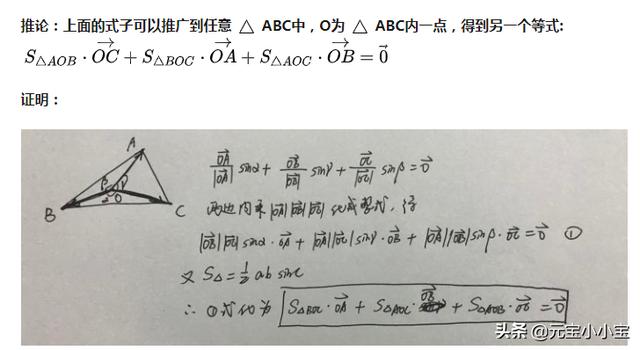 推论：上面的式子可以推广到任意 △ ABC中，O为 △ ABC内一点，得到另一个等式:
S△AOB · OC⃗ + S△BOC · OA⃗ + S△AOC · OB⃗ = 0⃗
证明：
A
β γ
α O
B C
OA⃗/|OA⃗| sinα + OB⃗/|OB⃗| sinγ + OC⃗/|OC⃗| sinβ = 0⃗
两边同乘|OA⃗||OB⃗||OC⃗| 化成整式，得
|OB⃗||OC⃗| sinα · OA⃗ + |OA⃗||OC⃗| sinγ · OB⃗ + |OA⃗||OB⃗| sinβ · OC⃗ = 0⃗ ①
又 S△ = ½ ab sinC
∴ ①式化为 S△BOC · OA⃗ + S△AOC · OB⃗ + S△AOB · OC⃗ = 0⃗
头条 @元宝小小宝